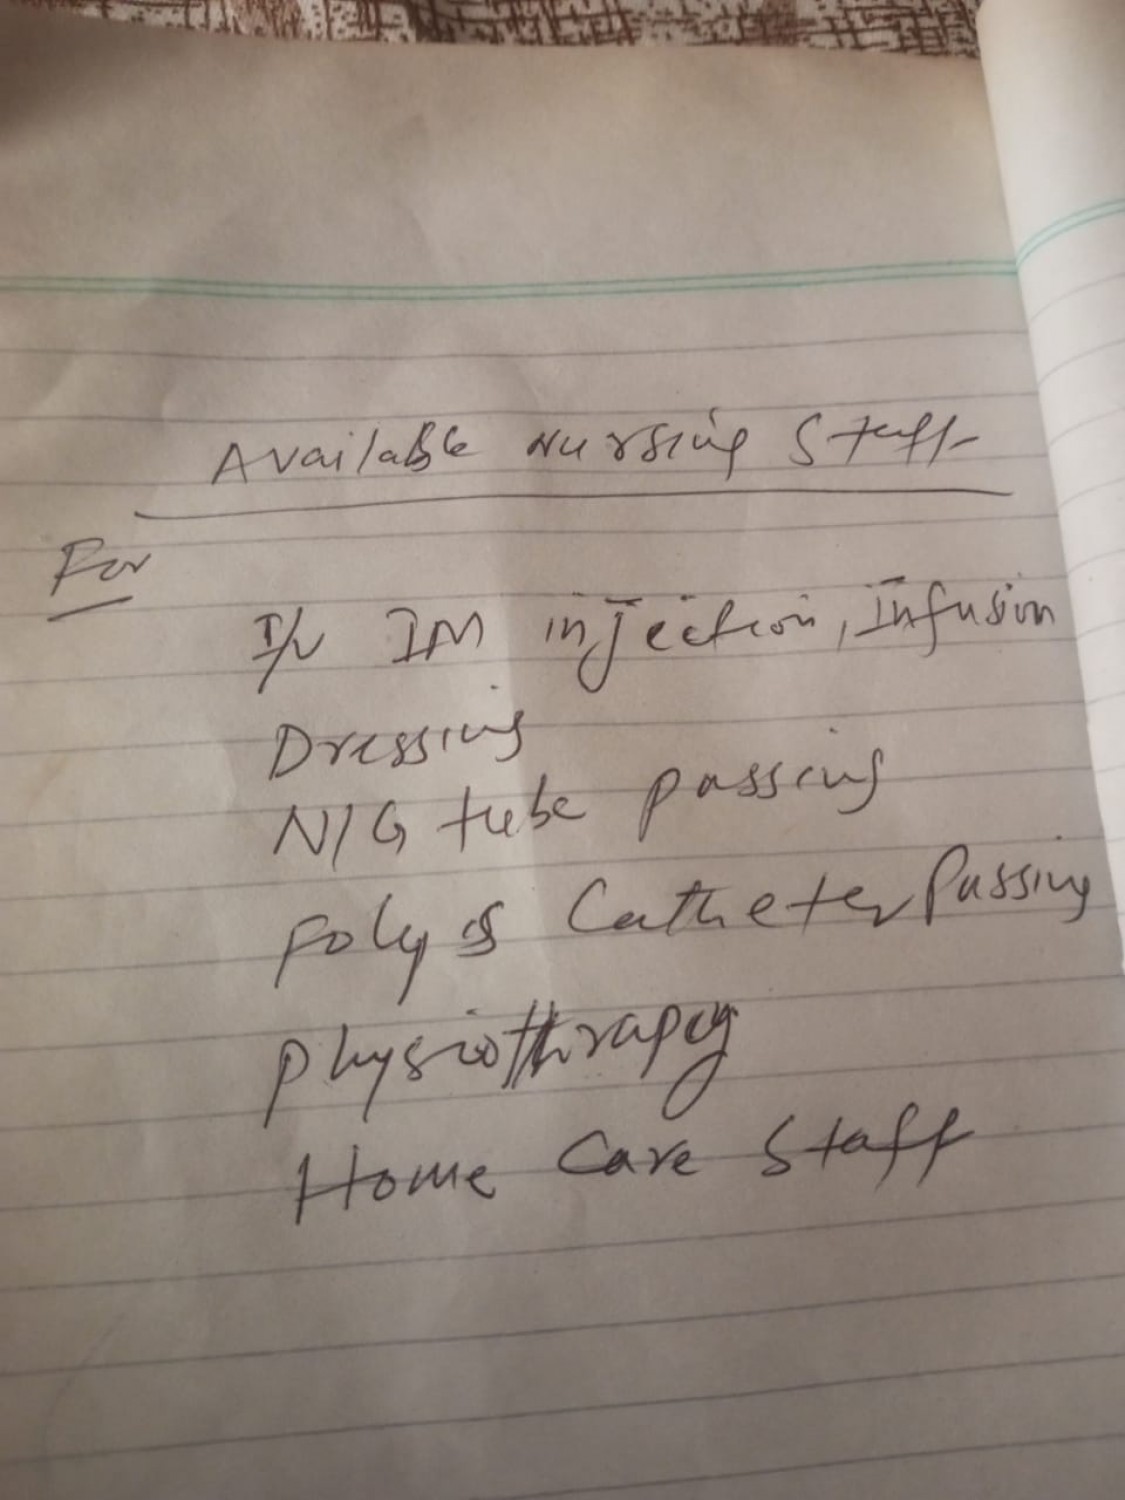 Available Nursing Staff
For
I/V IM injection, Infusion
Dressing
N/G tube passing
Foly's Catheter Passing
Physiothrapy
Home Care Staff